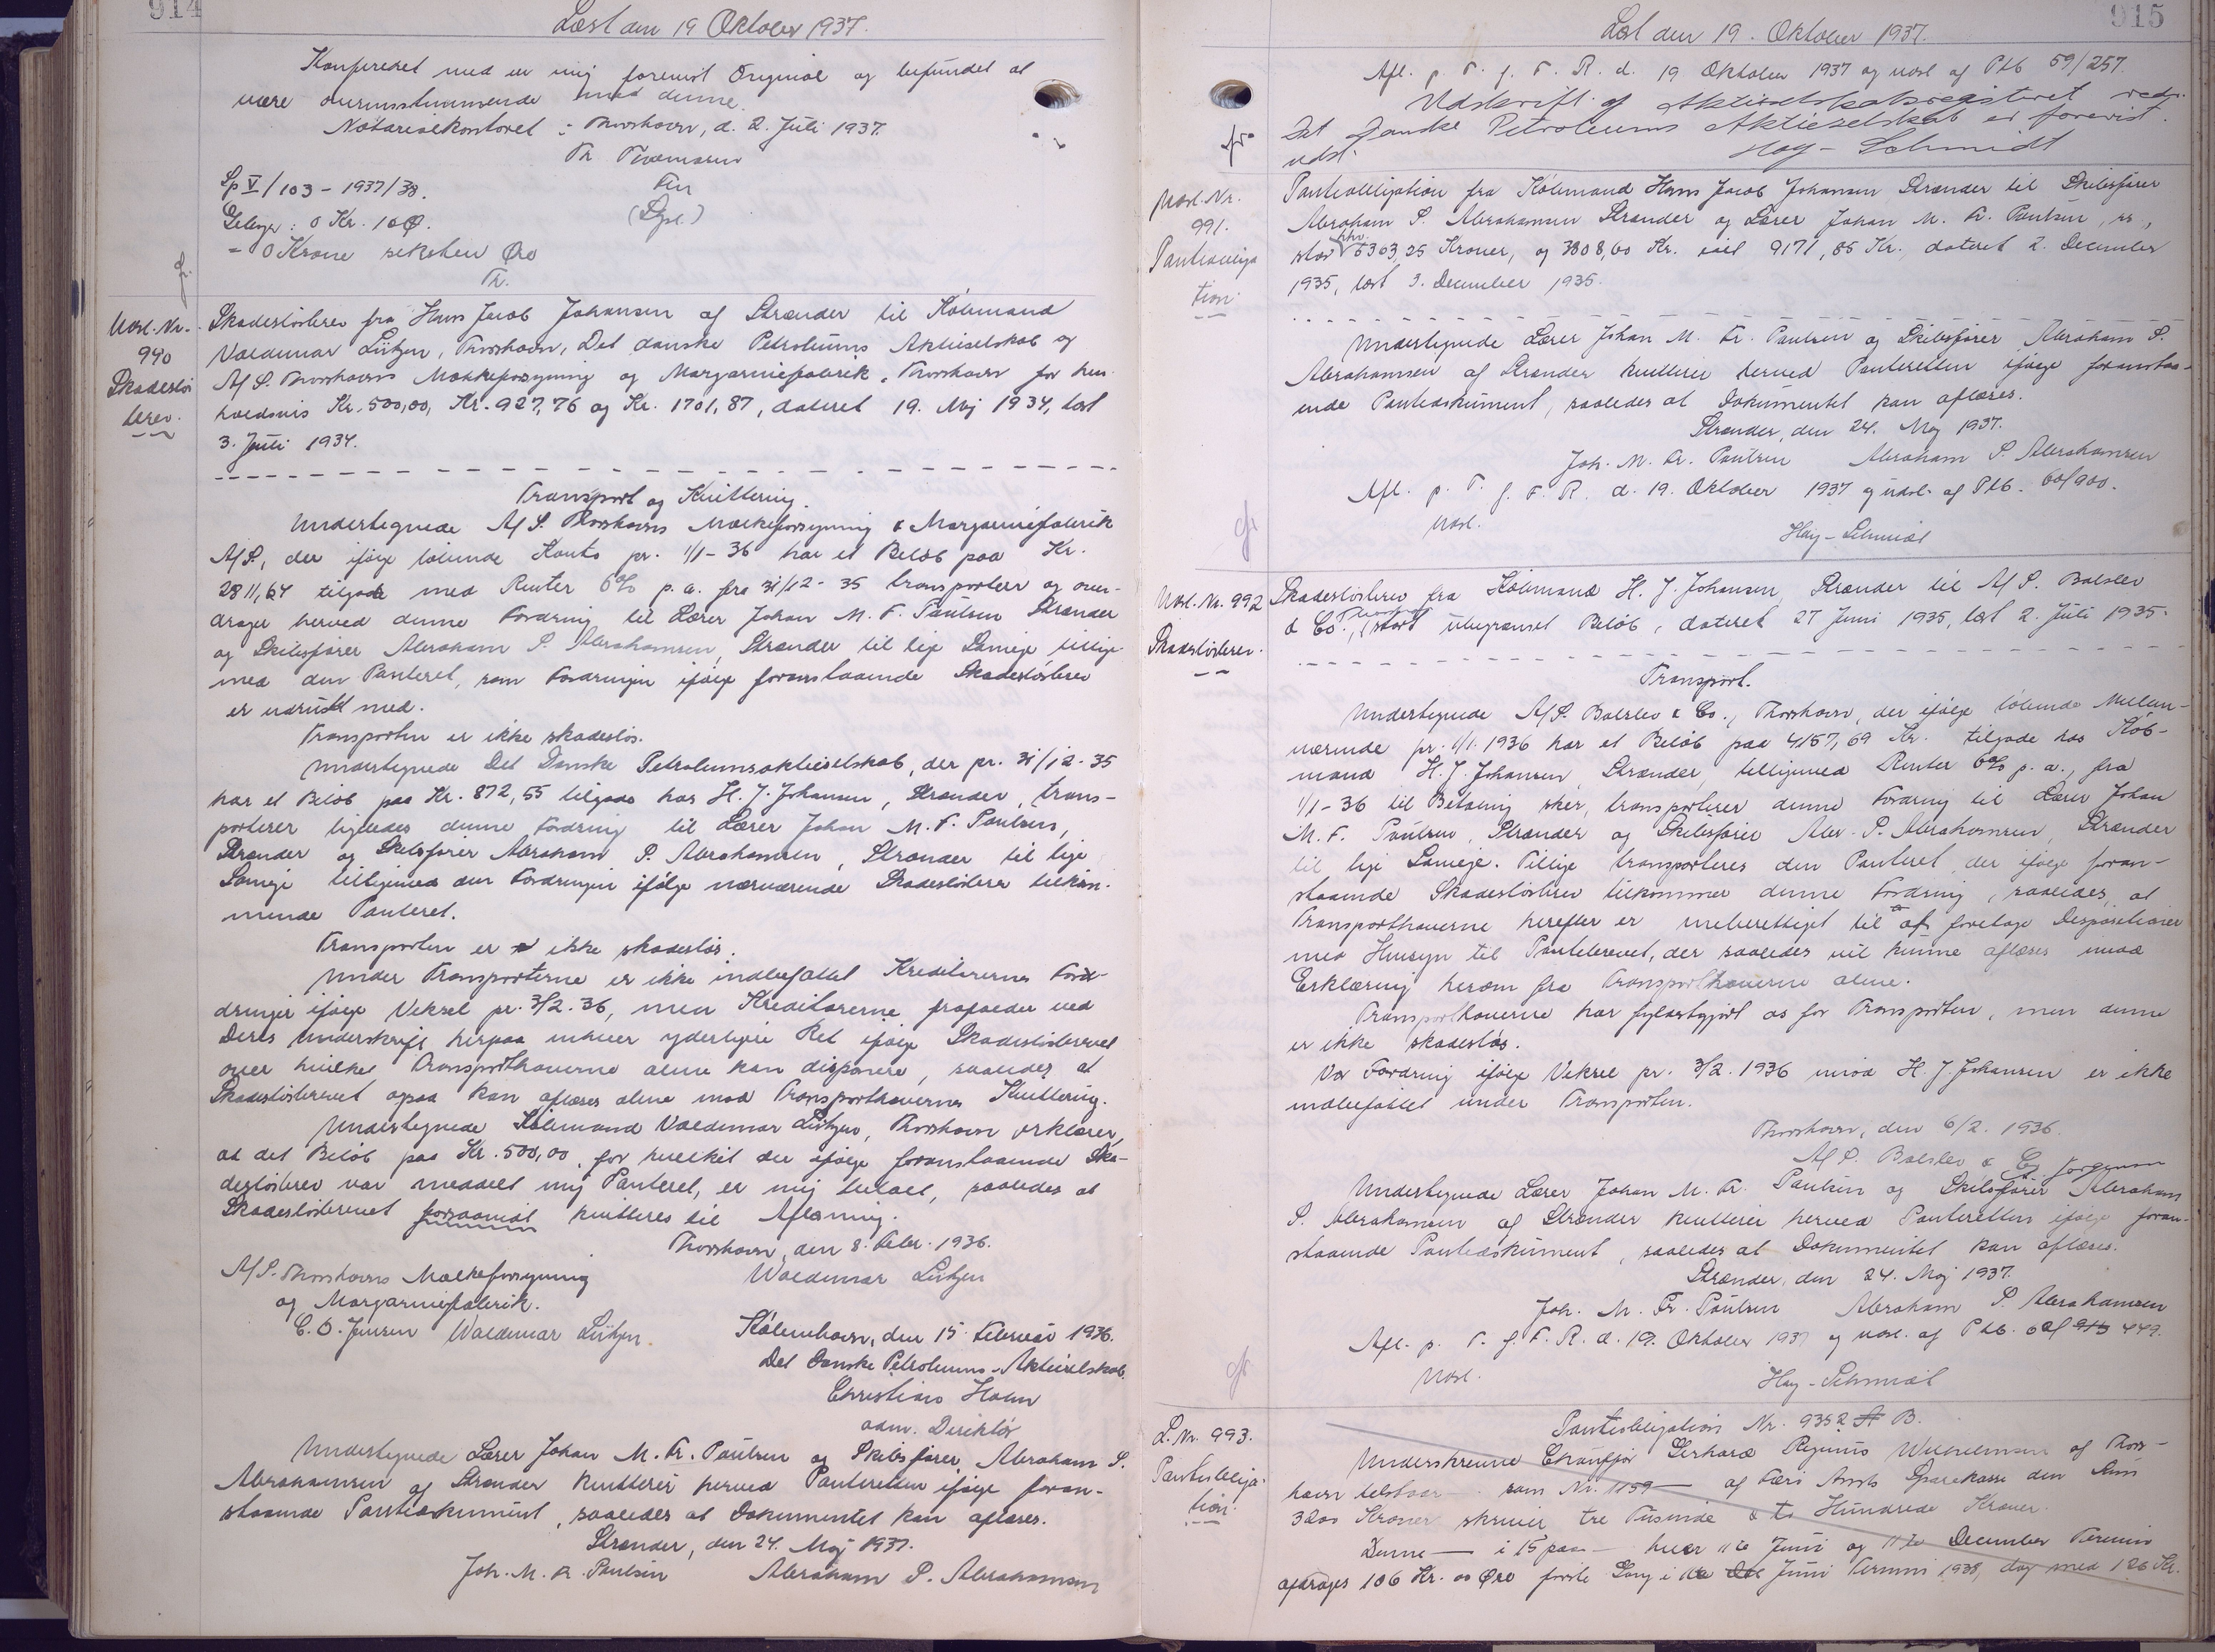 914
Læst den 19 Oktober 1937.
Konfereret med en mig forevist Original og befundet at
være overensstemmende med denne.
Notarialkontoret i Thorshavn, d. 2. Juli 1937.
Sp V/103 - 1937/38.
Gebyr: 0 Kr. 16 Ø.
= 0 Krone seksten Øre
Th.
Uvsl. Nr. 990
Skadesløsbrev.
Skadesløsbrev fra Hans Jacob Johansen af Strænder til Købmand
Valdemar Lützen, Thorshavn, Det danske Petroleums Aktieselskab og
A/S. Thorshavns Mælkeforsyning og Margarinefabrik, Thorshavn for hen-
holdsvis Kr. 500,00, Kr. 927,76 og Kr. 1701,87, dateret 19. Maj 1934, læst
3. Juli 1934.
Transport og Kvittering.
Undertegnede A/S. Thorshavns Mælkeforsyning & Margarinefabrik
A/S., der ifølge løbende Konto pr. 1/1-36 har et Beløb paa Kr.
2811,64 tilgode med Renter 6% p.a. fra 31/12-35 transporterer og over-
drager herved denne Fordring til Lærer Johan M. F. Paulsen Strænder
og Skibsfører Abraham P. Abrahamsen, Strænder til lige Sameje tillige-
med den Panteret, som Fordringen ifølge foranstaaende Skadesløsbrev
er udrustet med.
Transporten er ikke skadesløs.
Undertegnede Det Danske Petroleumsaktieselskab, der pr. 31/12-35
har et Beløb paa Kr. 872,55 tilgode hos H. J. Johansen, Strænder, trans-
porterer ligeledes denne Fordring til Lærer Johan M. F. Paulsen,
Strænder og Skibsfører Abraham P. Abrahamsen, Strænder til lige
Sameje tilligemed den Fordringen ifølge nærværende Skadesløsbrev tilkom-
mende Panteret.
Transporten er ikke skadesløs.
Under Transporterne er ikke indbefattet Kreditorernes Ford-
dringer ifølge Veksel pr. 3/2.36, men Kreditorerne frafalder ved
Deres Underskrift herpaa enhver yderligere Ret ifølge Skadesløsbrevet
over hvilket Transporthaverne alene kan disponere, saaledes at
Skadesløsbrevet ogsaa kan aflæses alene mod Transporthavernes Kvittering.
Undertegnede Købmand Valdemar Lützen, Thorshavn erklærer,
at det Beløb paa Kr. 500,00, for hvilket der ifølge foranstaaende Ska-
desløsbrev var meddelt mig Panteret, er mig betalt, saaledes at
Skadesløsbrevet forsaavidt kvitteres til Aflæsning.
Thorshavn, den 8. Febr. 1936.
A/S. Thorshavns Mælkeforsyning Waldemar Lützen
og Margarinefabrik.
C. O. Jensen Waldemar Lützen.
København, den 15. Februar 1936.
Det Danske Petroleums-Aktieselskab.
Christian Holm
adm. Direktør
Undertegnede Lærer Johan M. Fr. Paulsen og Skibsfører Abraham P.
Abrahamsen af Strænder kvitterer herved Panteretten ifølge foran-
staaende Pantedokument, saaledes at Dokumentet kan aflæses.
Strænder, den 24. Maj 1937.
Joh. M. Fr. Paulsen Abraham P. Abrahamsen
915
Læst den 19. Oktober 1937.
Afl. p. T. f. F. R. d. 19 Oktober 1937 og udsl. af Ptb 59/257.
Udskrift af Aktieselskabsregisteret vedr.
Det danske Petroleums Aktieselskab er forevist.
udsl. Høy-Schmidt
Uvsl. Nr.
991.
Pantobliga
tion.
Pantobligation fra Købmand Hans Jacob Johansen Strænder til Skibsfører
Abraham P. Abrahamsen Strænder og Lærer Johan M. Fr. Paulsen,
stor hhv. 5303,25 Kroner, og 3808,60 Kr. ialt 9171,85 Kr., dateret 2. December
1935, læst 3. December 1935.
Undertegnede Lærer Johan M. Fr. Paulsen og Skibsfører Abraham P.
Abrahamsen af Strænder kvitterer herved Panteretten ifølge foranstaa-
ende Pantedokument, saaledes at Dokumentet kan aflæses.
Strænder, den 24. Maj 1937.
Joh. M. Fr. Paulsen Abraham P. Abrahamsen
Afl. p. T. f. F. R. d. 19. Oktober 1937 og udsl. af Ptb. 60/900.
Udsl. Høy-Schmidt
Uvsl. Nr. 992
Skadesløsbrev.
Skadesløsbrev fra Købmand H. J. Johansen, Strænder til A/S. Balslev
& Co., Thorshavn, stort ubegrænset Beløb, dateret 27 Juni 1935, læst 2. Juli 1935.
Transport.
Undertegnede A/S. Balslev & Co., Thorshavn, der ifølge løbende Mellem-
værende pr. 1/1.1936 har et Beløb paa 4157,69 Kr. tilgode hos Køb-
mand H. J. Johansen, Strænder, tilligemed Renter 6% p.a., fra
1/1-36 til Betaling sker, transporterer denne Fordring til Lærer Johan
M. F. Paulsen, Strænder og Skibsfører Abr. P. Abrahamsen, Strænder
til lige Sameje. Tillige transporteres den Panteret, der ifølge foran-
staaende Skadesløsbrev tilkommer denne Fordring, saaledes, at
Transporthaverne herefter er eneberettiget til at foretage Dispositioner
med Hensyn til Pantebrevet, der saaledes vil kunne aflæses imod
Erklæring herom fra Transporthaverne alene.
Transporthaverne har fyldestgjort os for Transporten, men denne
er ikke skadesløs.
Vor Fordring ifølge Veksel pr. 3/2.1936 imod H. J. Johansen er ikke
indbefattet under Transporten.
Thorshavn, den 6/2. 1936.
A/S. Balslev & Co. Jørgensen
Undertegnede Lærer Johan M. Fr. Paulsen og Skibsfører Abraham
P. Abrahamsen af Strænder kvitterer herved Panteretten ifølge foran-
staaende Pantedokument, saaledes at Dokumentet kan aflæses.
Strænder, den 24. Maj 1937.
Joh. M. Fr. Paulsen Abraham P. Abrahamsen
Afl. p. T. f. F. R. d. 19. Oktober 1937 og udsl. af Ptb. 449.
Udsl. Høy-Schmidt
L. Nr. 993.
Pantobliga-
tion.
Pantobligation Nr. 9352 B.
Underskrevne Chauffør Gerhard Regnus Wilhelmsen af Thors-
havn tilstaar som Nr. 1159 af Færø Amts Sparekasse den Sum
3200 Kroner skriver tre Tusinde & to Hundrede Kroner.
Denne — i 15 paa — hver 11te Juni og 11te December Termin
afdrages 106 Kr. 00 Øre første Gang i Juni Termin 1938, dog med 126 Kr.